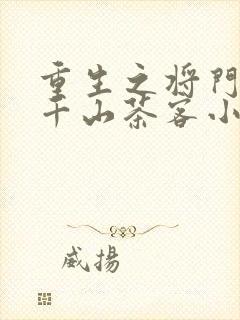 重生之将門
千山茶客小
威揚